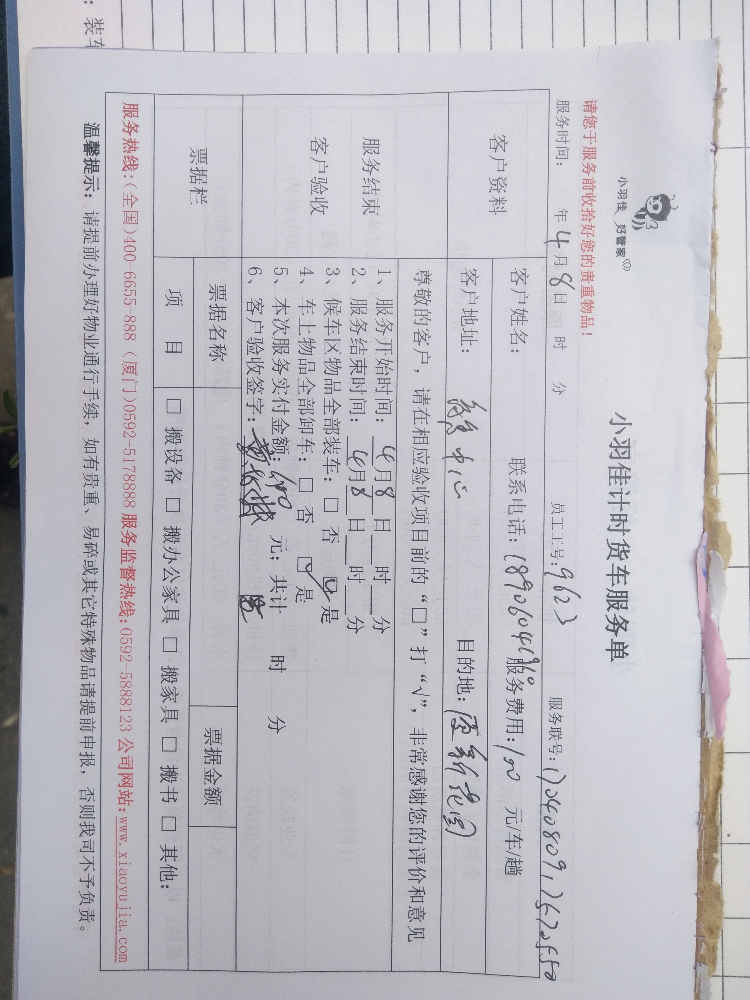 ：装车
小羽佳 好管家
小羽佳计时货车服务单
请您于服务前收拾好您的贵重物品！
服务时间： 年4月8日 时 分 员工工号：9623 服务联号：
客户资料
客户姓名： 联系电话： 服务费用：100 元/车/趟
客户地址： 中心 目的地：
尊敬的客户，请在相应验收项目前的“□”打“√”，非常感谢您的评价和意见
服务结束
客户验收
1、服务开始时间：4月8日 时 分
2、服务结束时间：4月8日 时 分
3、候车区物品全部装车：□ 否 ☑ 是
4、车上物品全部卸车：□ 否 ☑ 是
5、本次服务实付金额： 元；共计 时 分
6、客户验收签字：
票据栏
票据名称 票据金额
项 目 □ 搬设备 □ 搬办公家具 □ 搬家具 □ 搬书 □ 其他：
服务热线：(全国)400-6655-888 (厦门)0592-5178888 服务监督热线：0592-5888123 公司网站：www.xiaoyujia.com
温馨提示：请提前办理好物业通行手续，如有贵重、易碎或其它特殊物品请提前申报，否则我司不予负责。